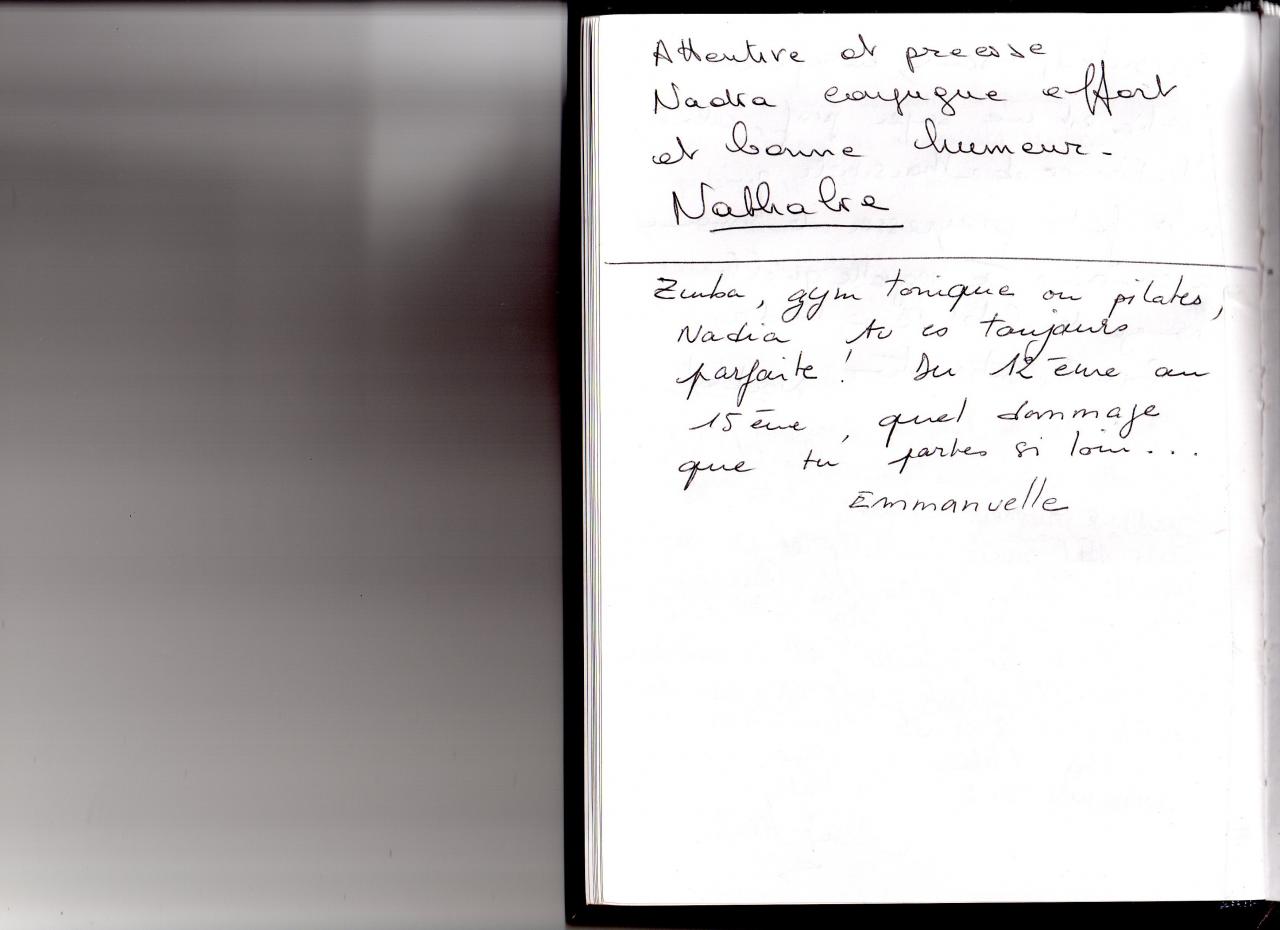 Attentive et précise
Nadia conjugue effort
et bonne humeur -
Nathalie
Zumba, gym tonique ou pilates,
Nadia tu es toujours
parfaite ! Du 12 ème au
15 ème, quel dommage
que tu partes si loin...
Emmanuelle